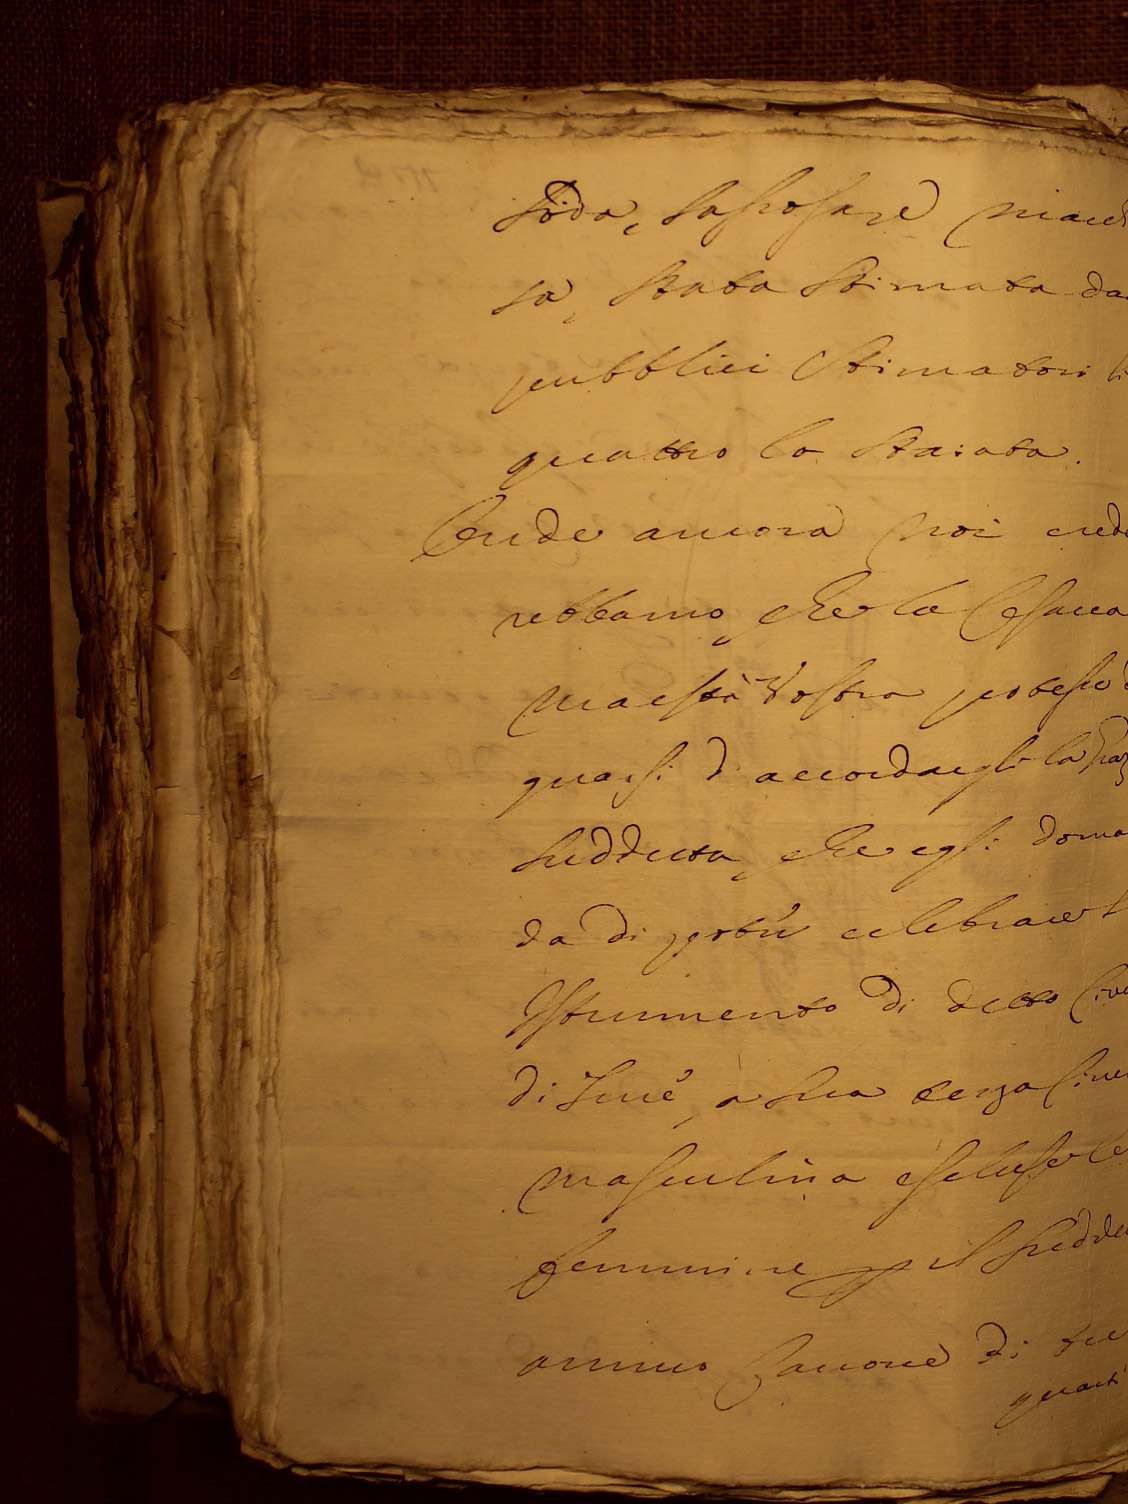 Soda, Sassosa, e
sa, stata stimata da
pubblici Stimatori li
quattro lo Staiata.
Onde ancora noi crede
rebbamo, che la Cesarea
Maestà Vostra potesse d
quasi di accordargli la Graz
suddetta, che egli doma
da di potér celebrare l
Istrumento di detto Live
di Scrè, a sua terza Line
masculina escluse le
femmine p il sudde
annuo Canone di
quatt